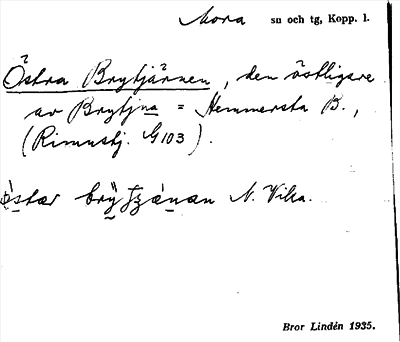 Mora su och tg, Kopp. l.
Östra Brytjärnen, den östligare
av Brytjna = Hemmersta B.,
(Rimustj. G 103).
N. Vika.
Bror Lindén 1935.